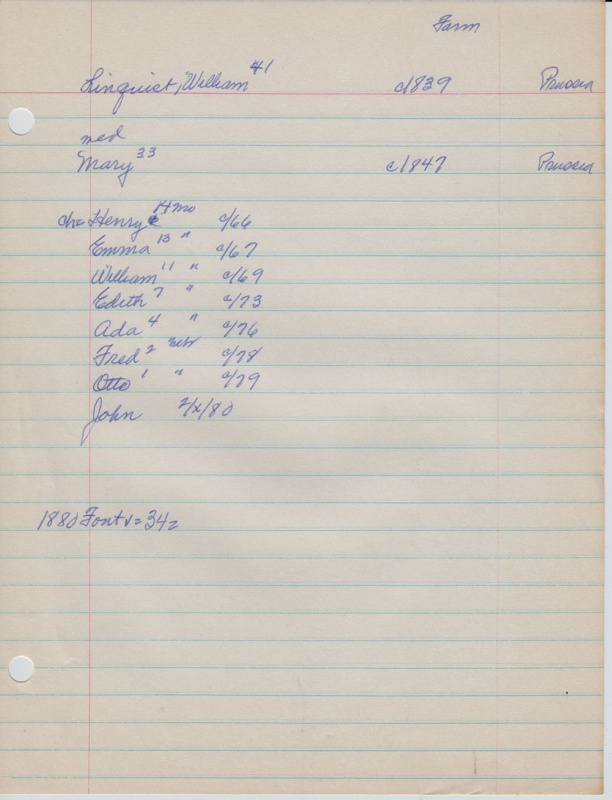 Farm
Linquist, William 41 c1839 Prussia
med
Mary 33 c1847 Prussia
ch= Henry 14 mo c/66
Emma 13 " c/67
William 11 " c/69
Edith 7 " c/73
Ada 4 " c/76
Fred 2 Nebr c/78
Otto 1 " c/79
John 2/x/80
1880 Font v= 342